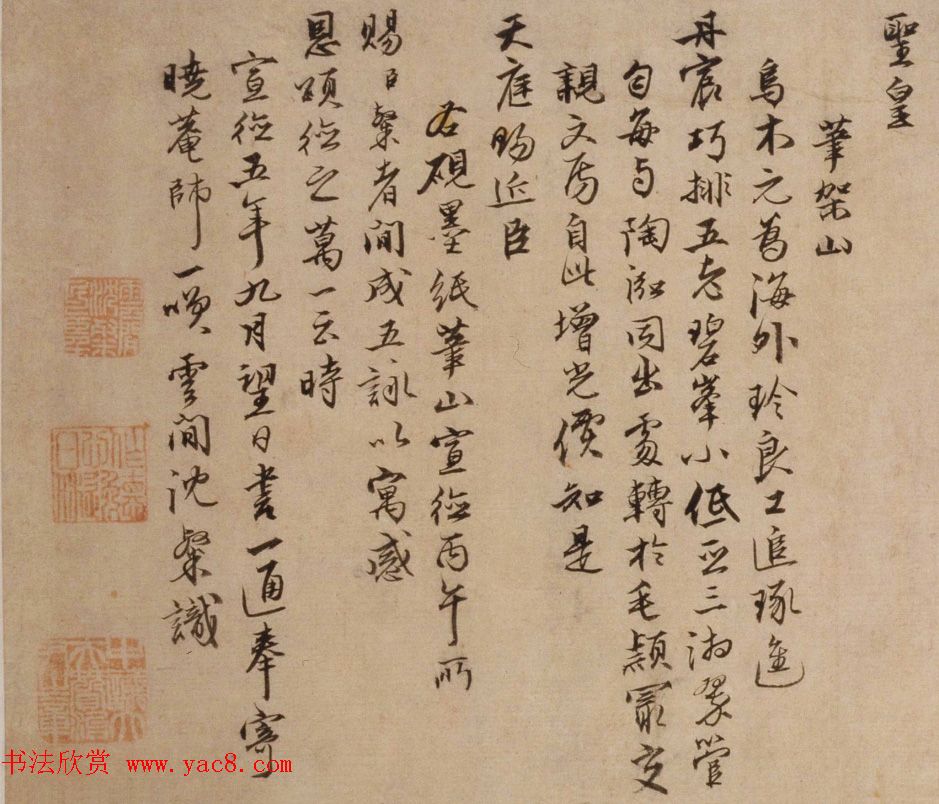 聖皇
筆架山
烏木元為海外珍良工追琢進
丹宸巧排五老碧峯小低亞三湘翠管
勻每与陶泓同出處轉於毛穎最交
親文房自此增光價知是
天庭賜近臣
右硯墨紙筆山宣德丙午所
賜臣粲者間成五詠以寓感
恩頌德之萬一云時
宣德五年九月望日書一通奉寄
曉菴師一咲雲間沈粲識
书法欣赏 www.yac8.com